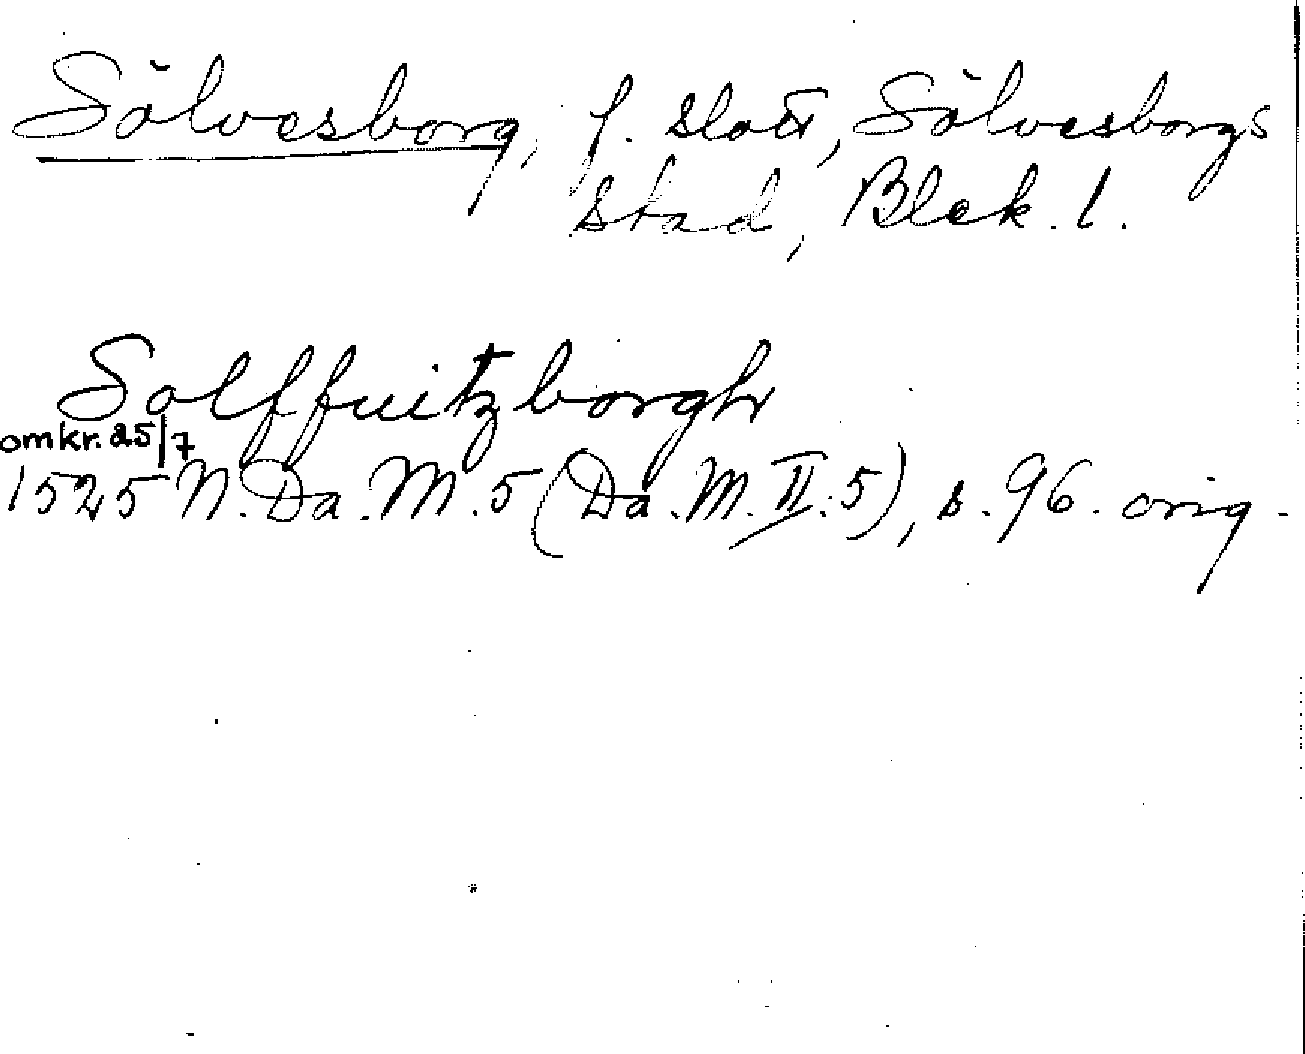 Sölvesborg, f. slott, Sölvesborgs
stad, Blek. l.
Solffuitzborgh
omkr. 25/7
1525 N. Da. M. 5 (Da. M. II. 5), s. 96. orig.